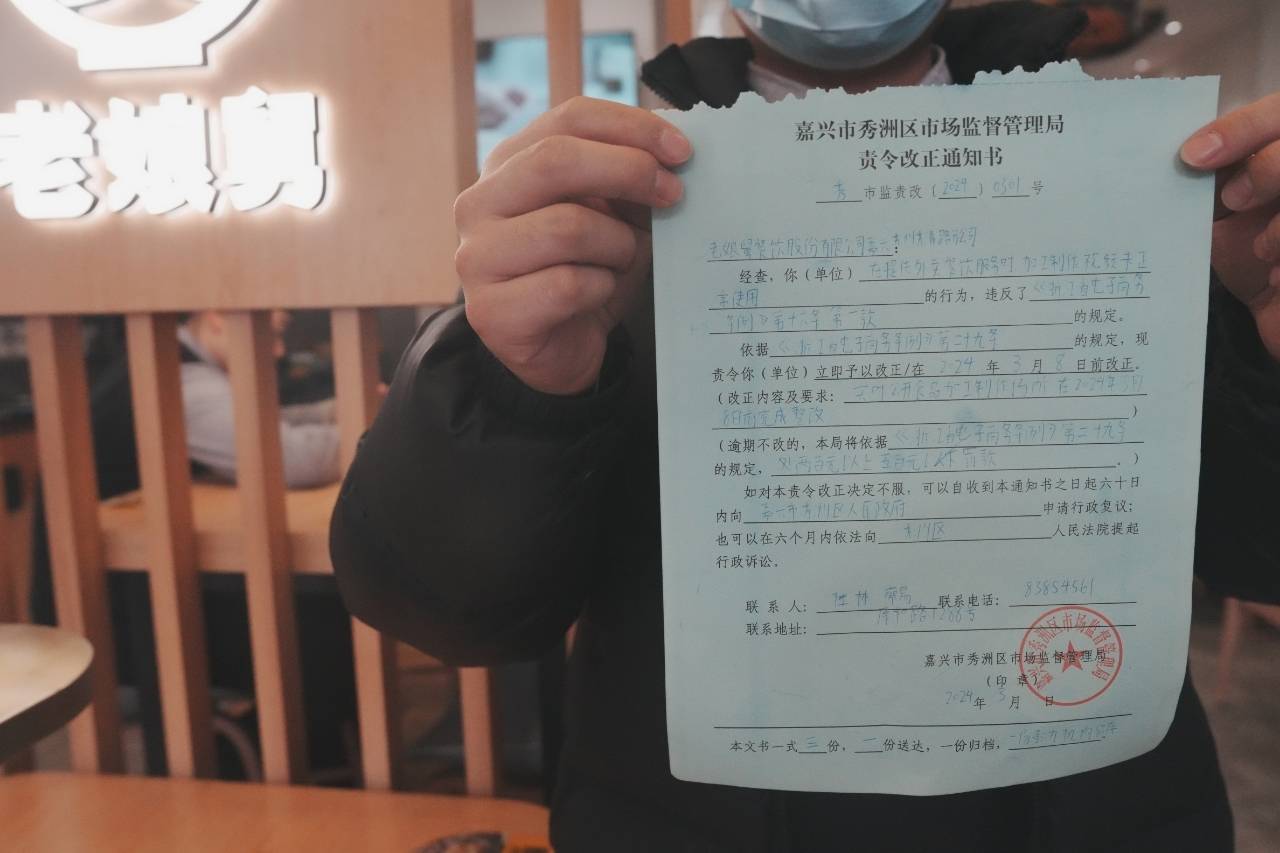 老娘舅
嘉兴市秀洲区市场监督管理局
责令改正通知书
秀市监责改〔2024〕0301号
老娘舅餐饮股份有限公司嘉兴分公司：
经查，你（单位）在提供外卖餐饮服务时 加工制作视频未正
常使用的行为，违反了《浙江省电子商务
条例》第十六条 第二款的规定。
依据《浙江省电子商务条例》第二十九条的规定，现
责令你（单位）立即予以改正/在 2024 年 3 月 8 日前改正。
（改正内容及要求：实时公开食品加工制作场所 在2024年3月
8日前完成整改）
（逾期不改的，本局将依据《浙江省电子商务条例》第二十九条
的规定，处两百元以上五百元以下罚款。）
如对本责令改正决定不服，可以自收到本通知书之日起六十日
内向嘉兴市秀洲区人民政府申请行政复议；
也可以在六个月内依法向南湖区人民法院提起
行政诉讼。
联系人： 联系电话：83854561
联系地址：路1288号
嘉兴市秀洲区市场监督管理局
（印章）
2024年 3 月 日
嘉兴市秀洲区市场监督管理局
本文书一式三份，一份送达，一份归档，